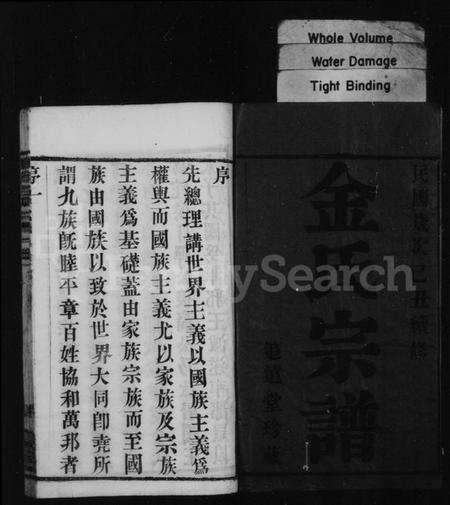 Whole Volume
Water Damage
Tight Binding
民國歲次己丑續修
金氏宗譜
序
先總理講世界主義以國族主義爲
權輿而國族主義尤以家族及宗族
主義爲基礎蓋由家族宗族而至國
族由國族以致於世界大同卽堯所
謂九族旣睦平章百姓協和萬邦者
序一
Search